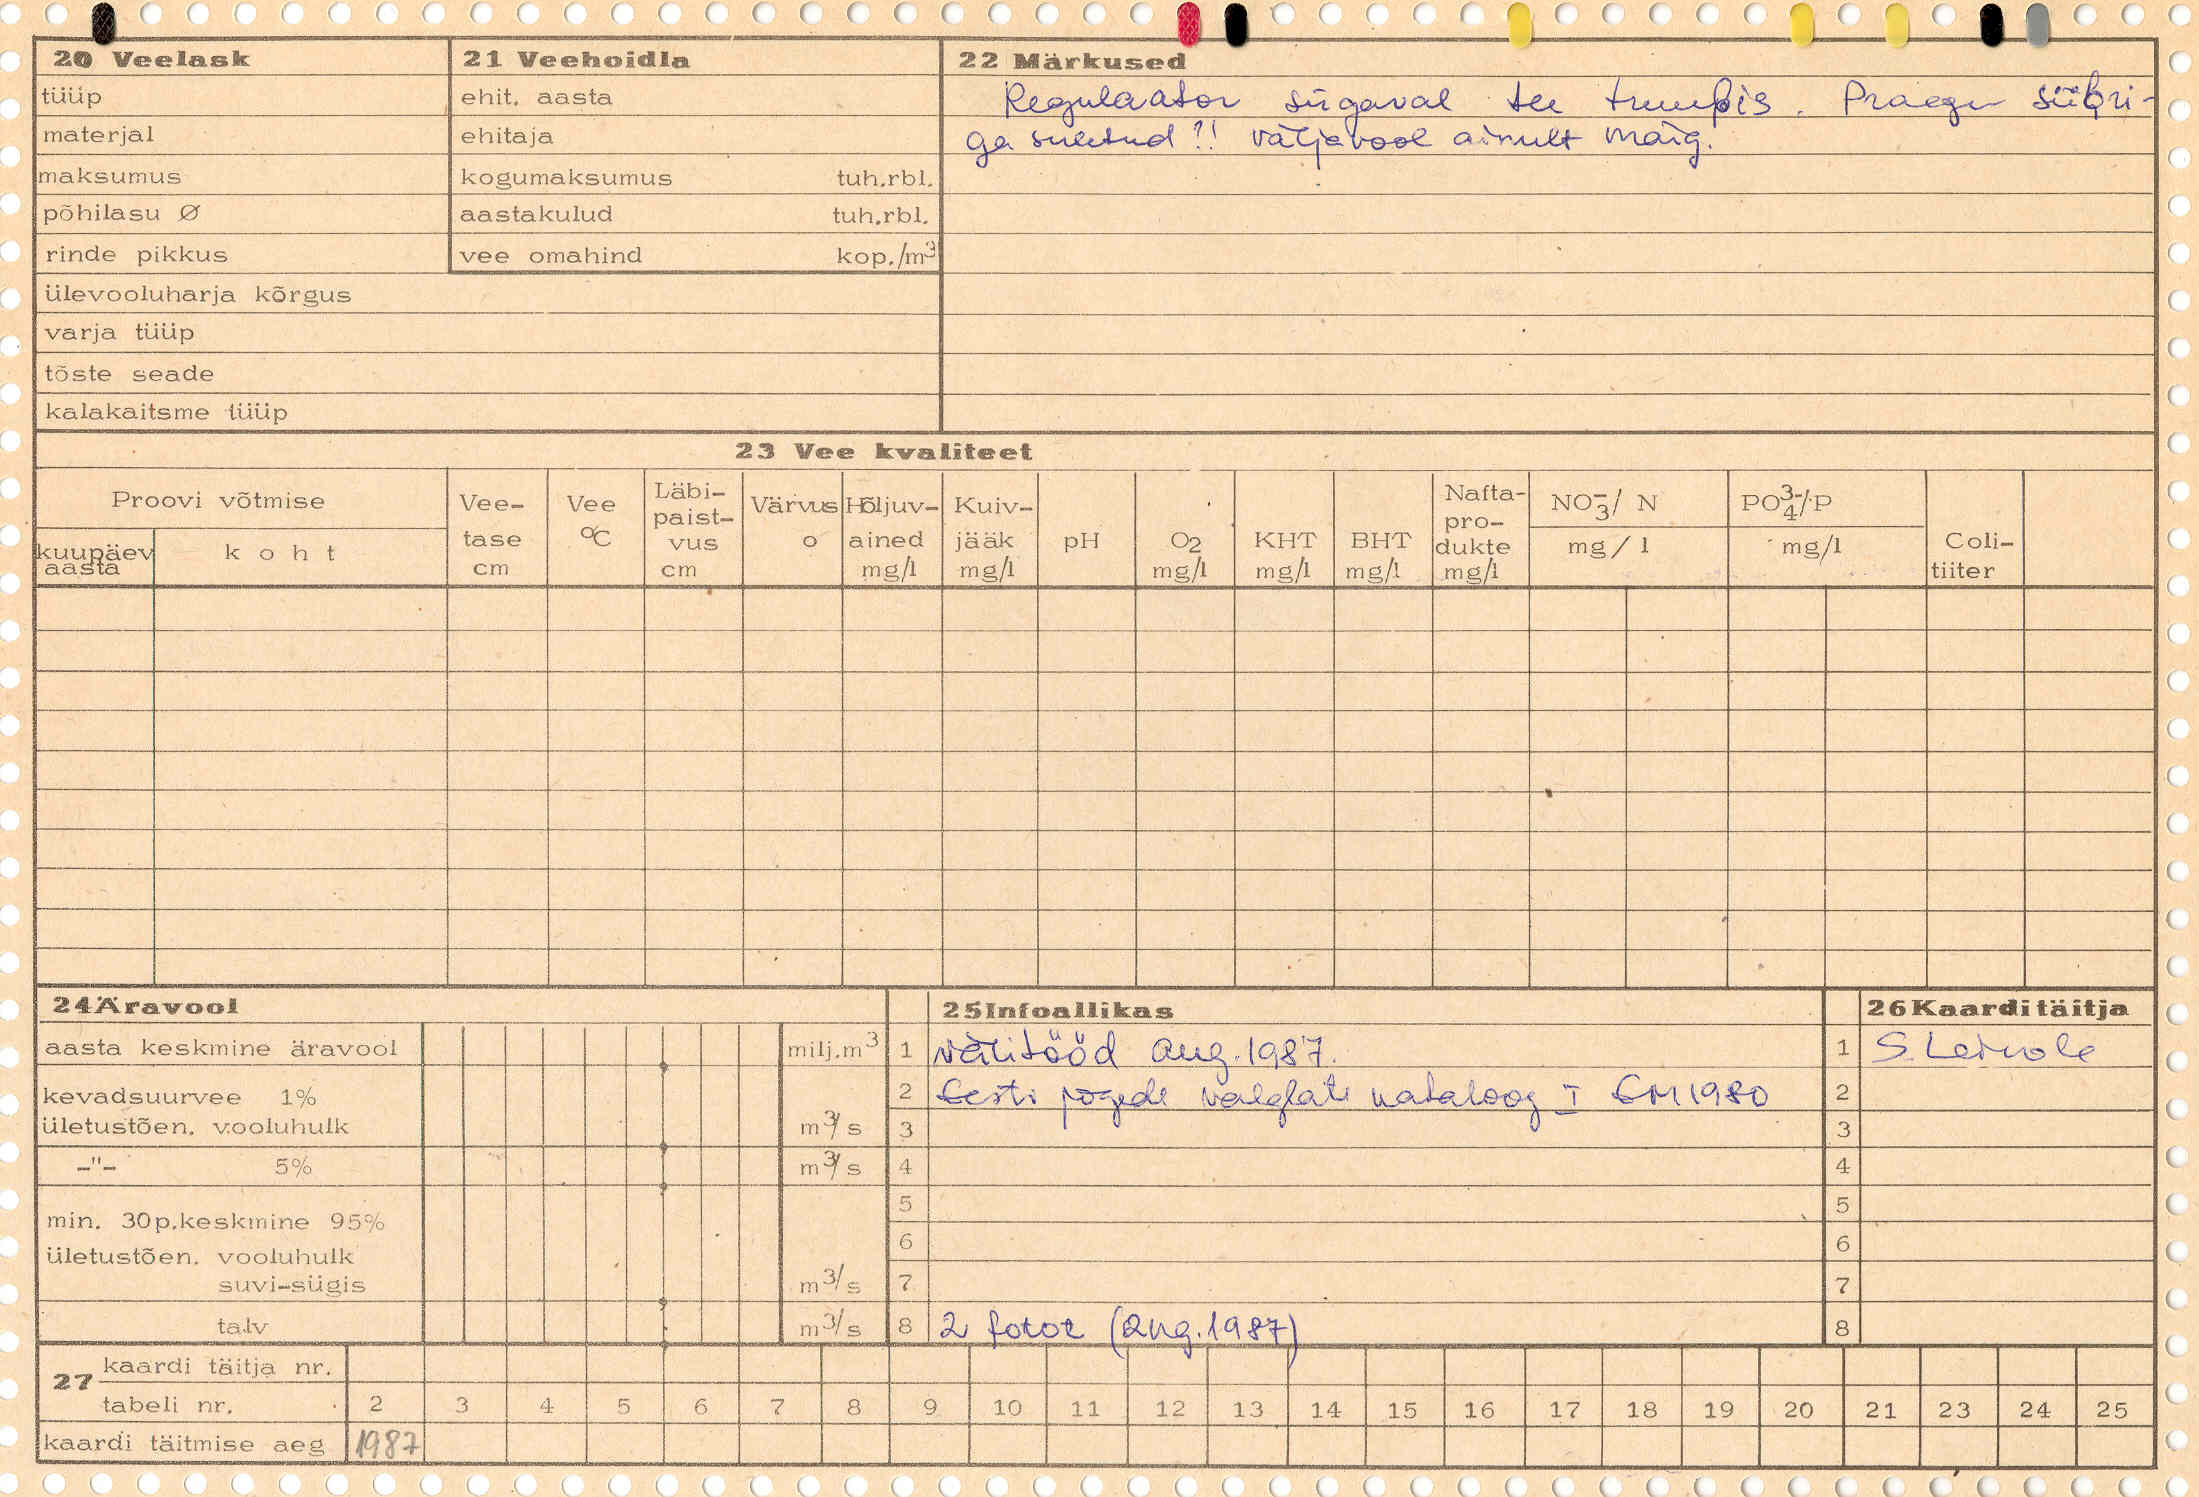 20 Veelask
tüüp
materjal
maksumus
põhilasu Ø
rinde pikkus
ülevooluharja kõrgus
varja tüüp
tõste seade
kalakaitsme tüüp
21 Veehoidla
ehit. aasta
ehitaja
kogumaksumus tuh.rbl.
aastakulud tuh.rbl.
vee omahind kop./m³
22 Märkused
Regulaator sügaval tee truubis. Praegu siibri-
ga suletud?! Väljavool ainult
23 Vee kvaliteet
Proovi võtmise
kuupäev aasta
koht
Vee-
tase
cm
Vee
°C
Läbi-
paist-
vus
cm
Värvus
o
Hõljuv-
ained
mg/l
Kuiv-
jääk
mg/l
pH
O2
mg/l
KHT
mg/l
BHT
mg/l
Nafta-
pro-
dukte
mg/l
NO₃⁻/ N
mg/l
PO₄³⁻/P
mg/l
Coli-
tiiter
24 Äravool
aasta keskmine äravool milj.m³
kevadsuurvee 1%
ületustõen. vooluhulk m³/s
-"- 5% m³/s
min. 30p.keskmine 95%
ületustõen. vooluhulk
suvi-sügis m³/s
talv m³/s
25 Infoallikas
1 Välitööd aug. 1987.
2 Eesti jõgede valglate kataloog I 1980
3
4
5
6
7
8 2 fotot (aug. 1987)
26 Kaarditäitja
1 S.
2
3
4
5
6
7
8
27 kaardi täitja nr.
tabeli nr. 2 3 4 5 6 7 8 9 10 11 12 13 14 15 16 17 18 19 20 21 23 24 25
kaardi täitmise aeg 1987